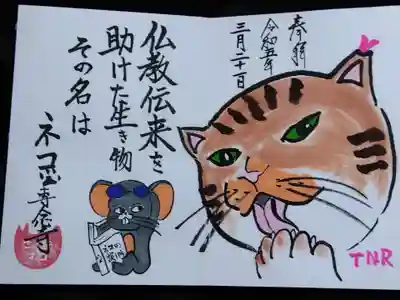 奉拝
令和五年
三月二十一日
仏教伝来を
助けた生き物
その名は
ネコ
専念寺
TNR